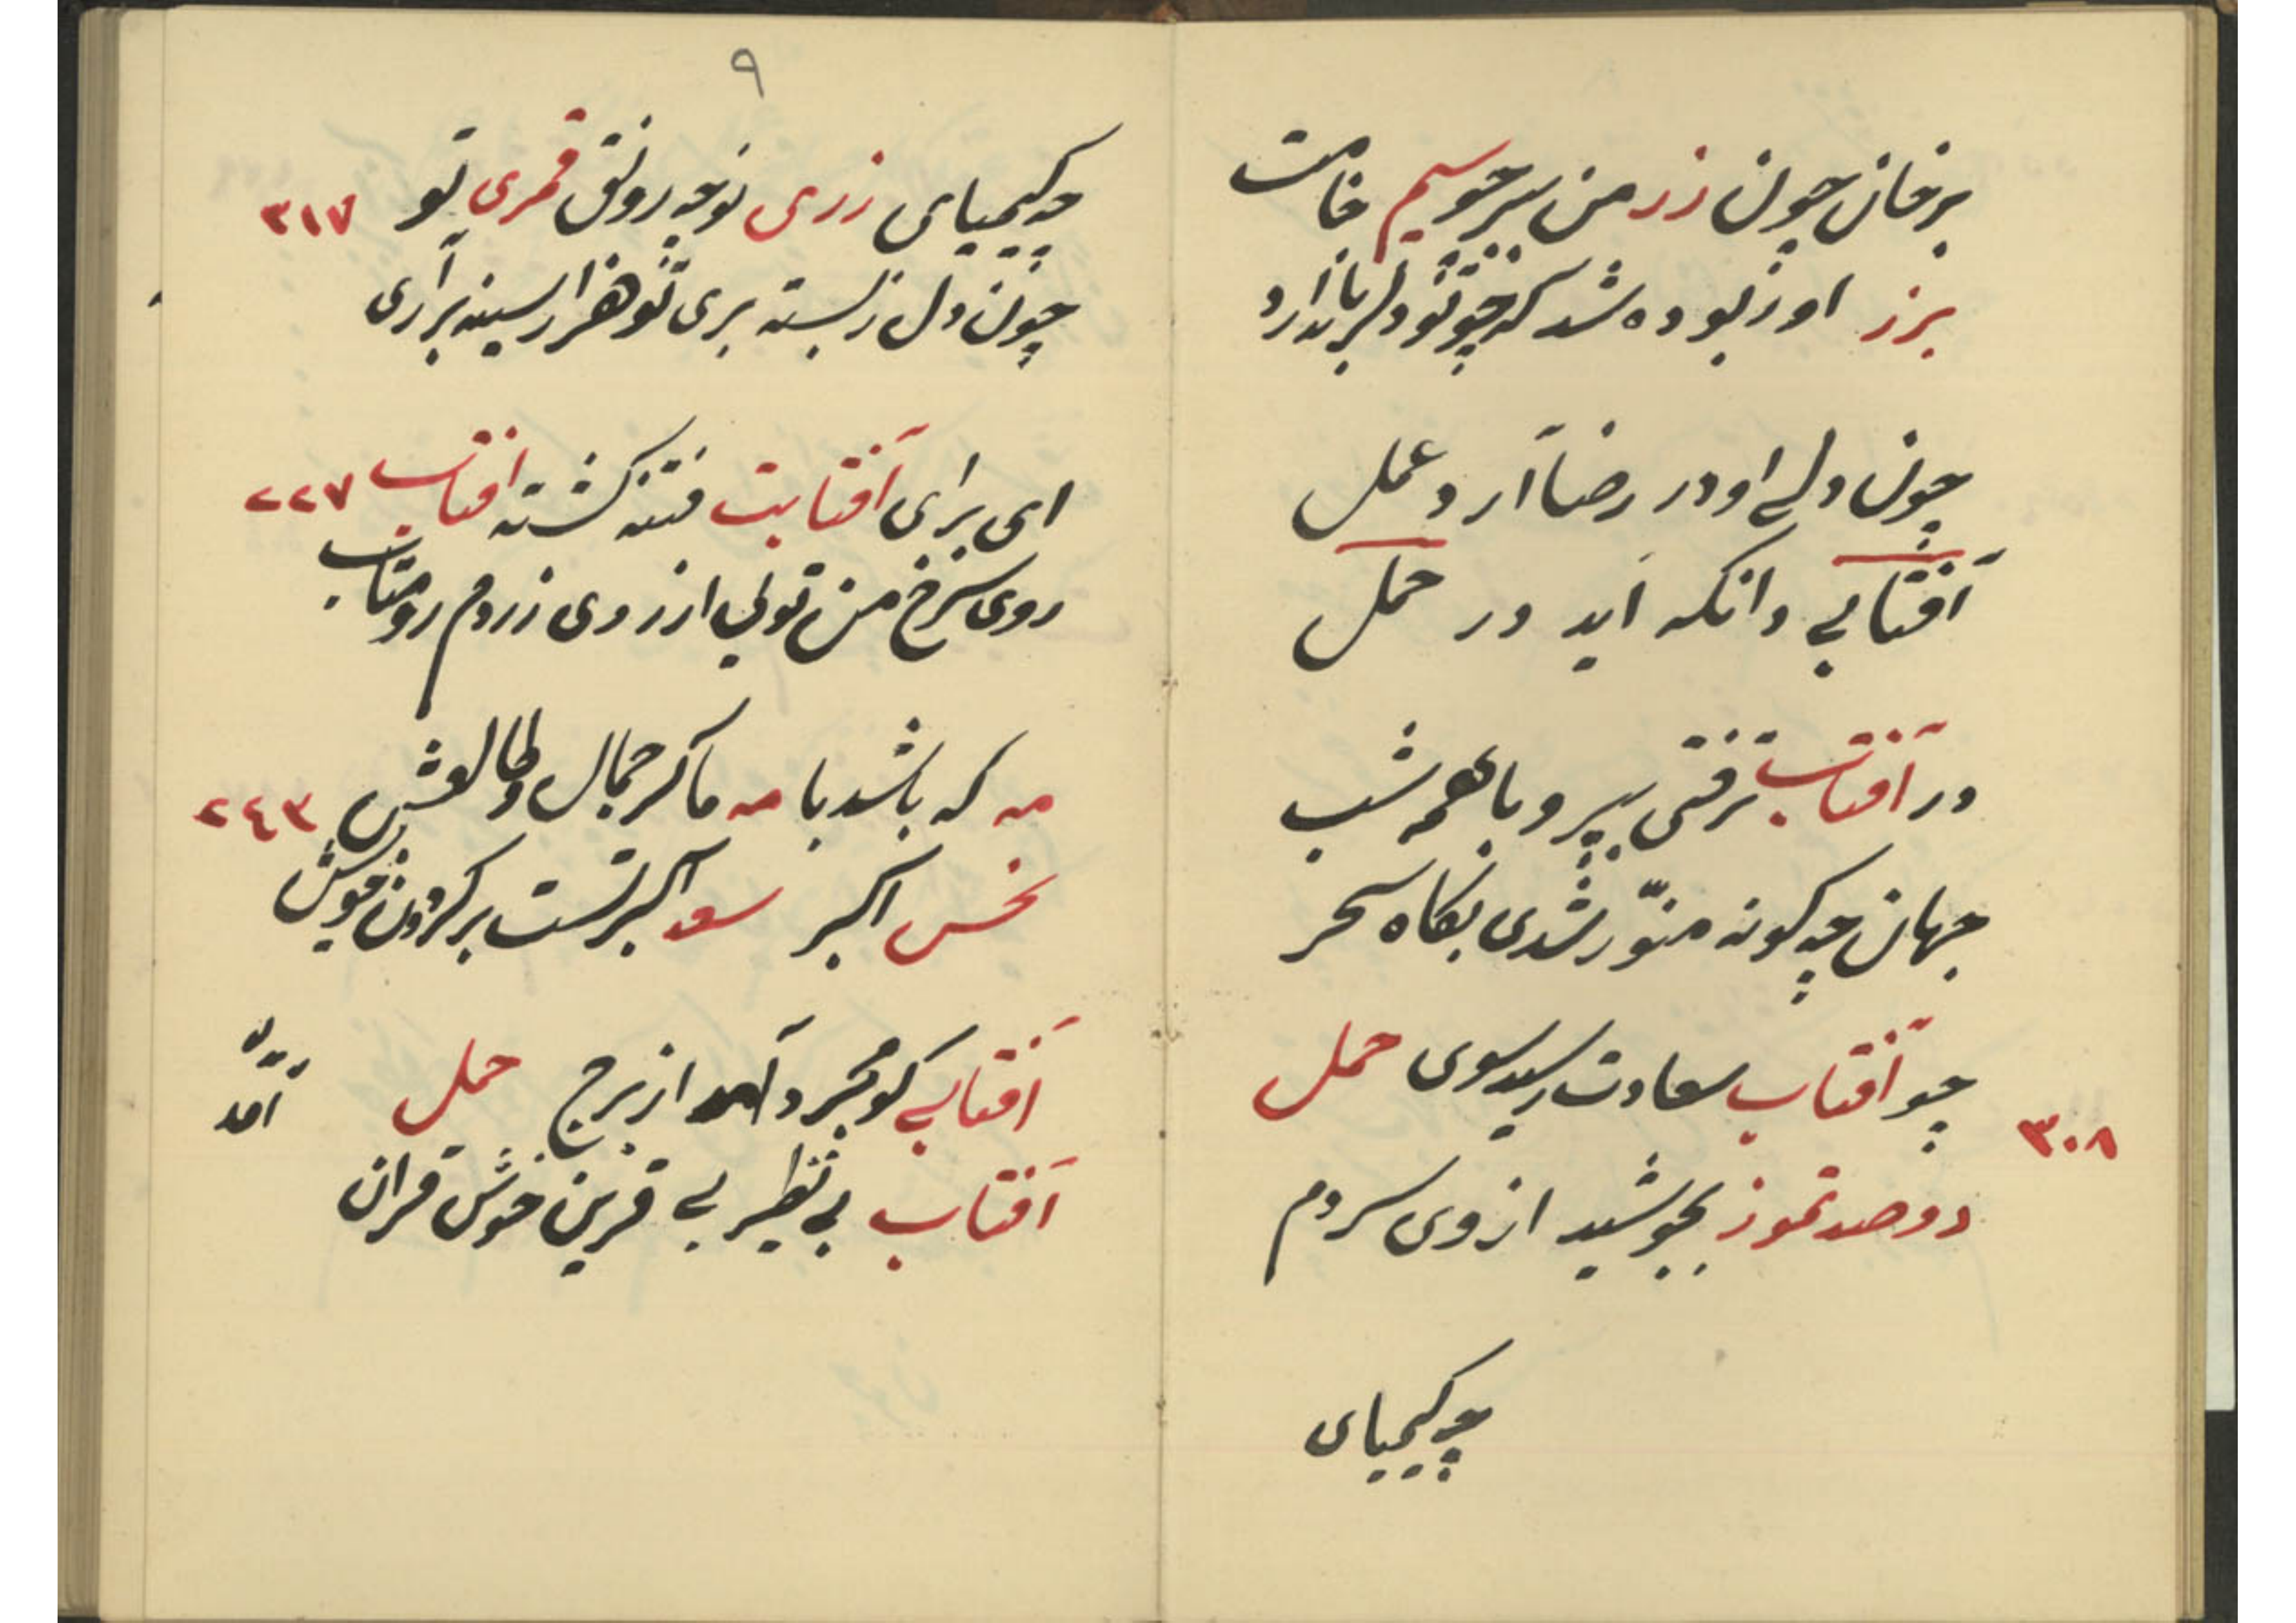 بر خان چون زر من سر چو سیم خامت
بر زر او ربوده شد که چو تو دلربا ندارد
چون دلے او در رضا آرد عمل
آفتابے دانکه آید در حمل
در آفتاب نرفتی بپیر و با همه شب
جهان چه کونه منوّر شدی بکاه سحر
چو آفتاب سعادت رسید سوی حمل
۳۰۸
دو صد تموز بجوشید از وی سردم
چه کیمیای
۹
چه کیمیای زری تو چه رونق قمری تو ۳۱۷
چون دل ز بسته بری تو هزار سینه برآری
ای برای آفتابت فتنه کشته آفتاب ۲۲۷
روی سرخ من تولی از روی زردم رو متاب
مه که باشد با مه ما کز جمال و طالعش ۲۴۳
نحس اکبر سعد اکبر تست بر کردون خویش
آفتابے کو مجرد آمد از برج حمل
آمد
آفتاب بے نظیر بے قرین خوش قران